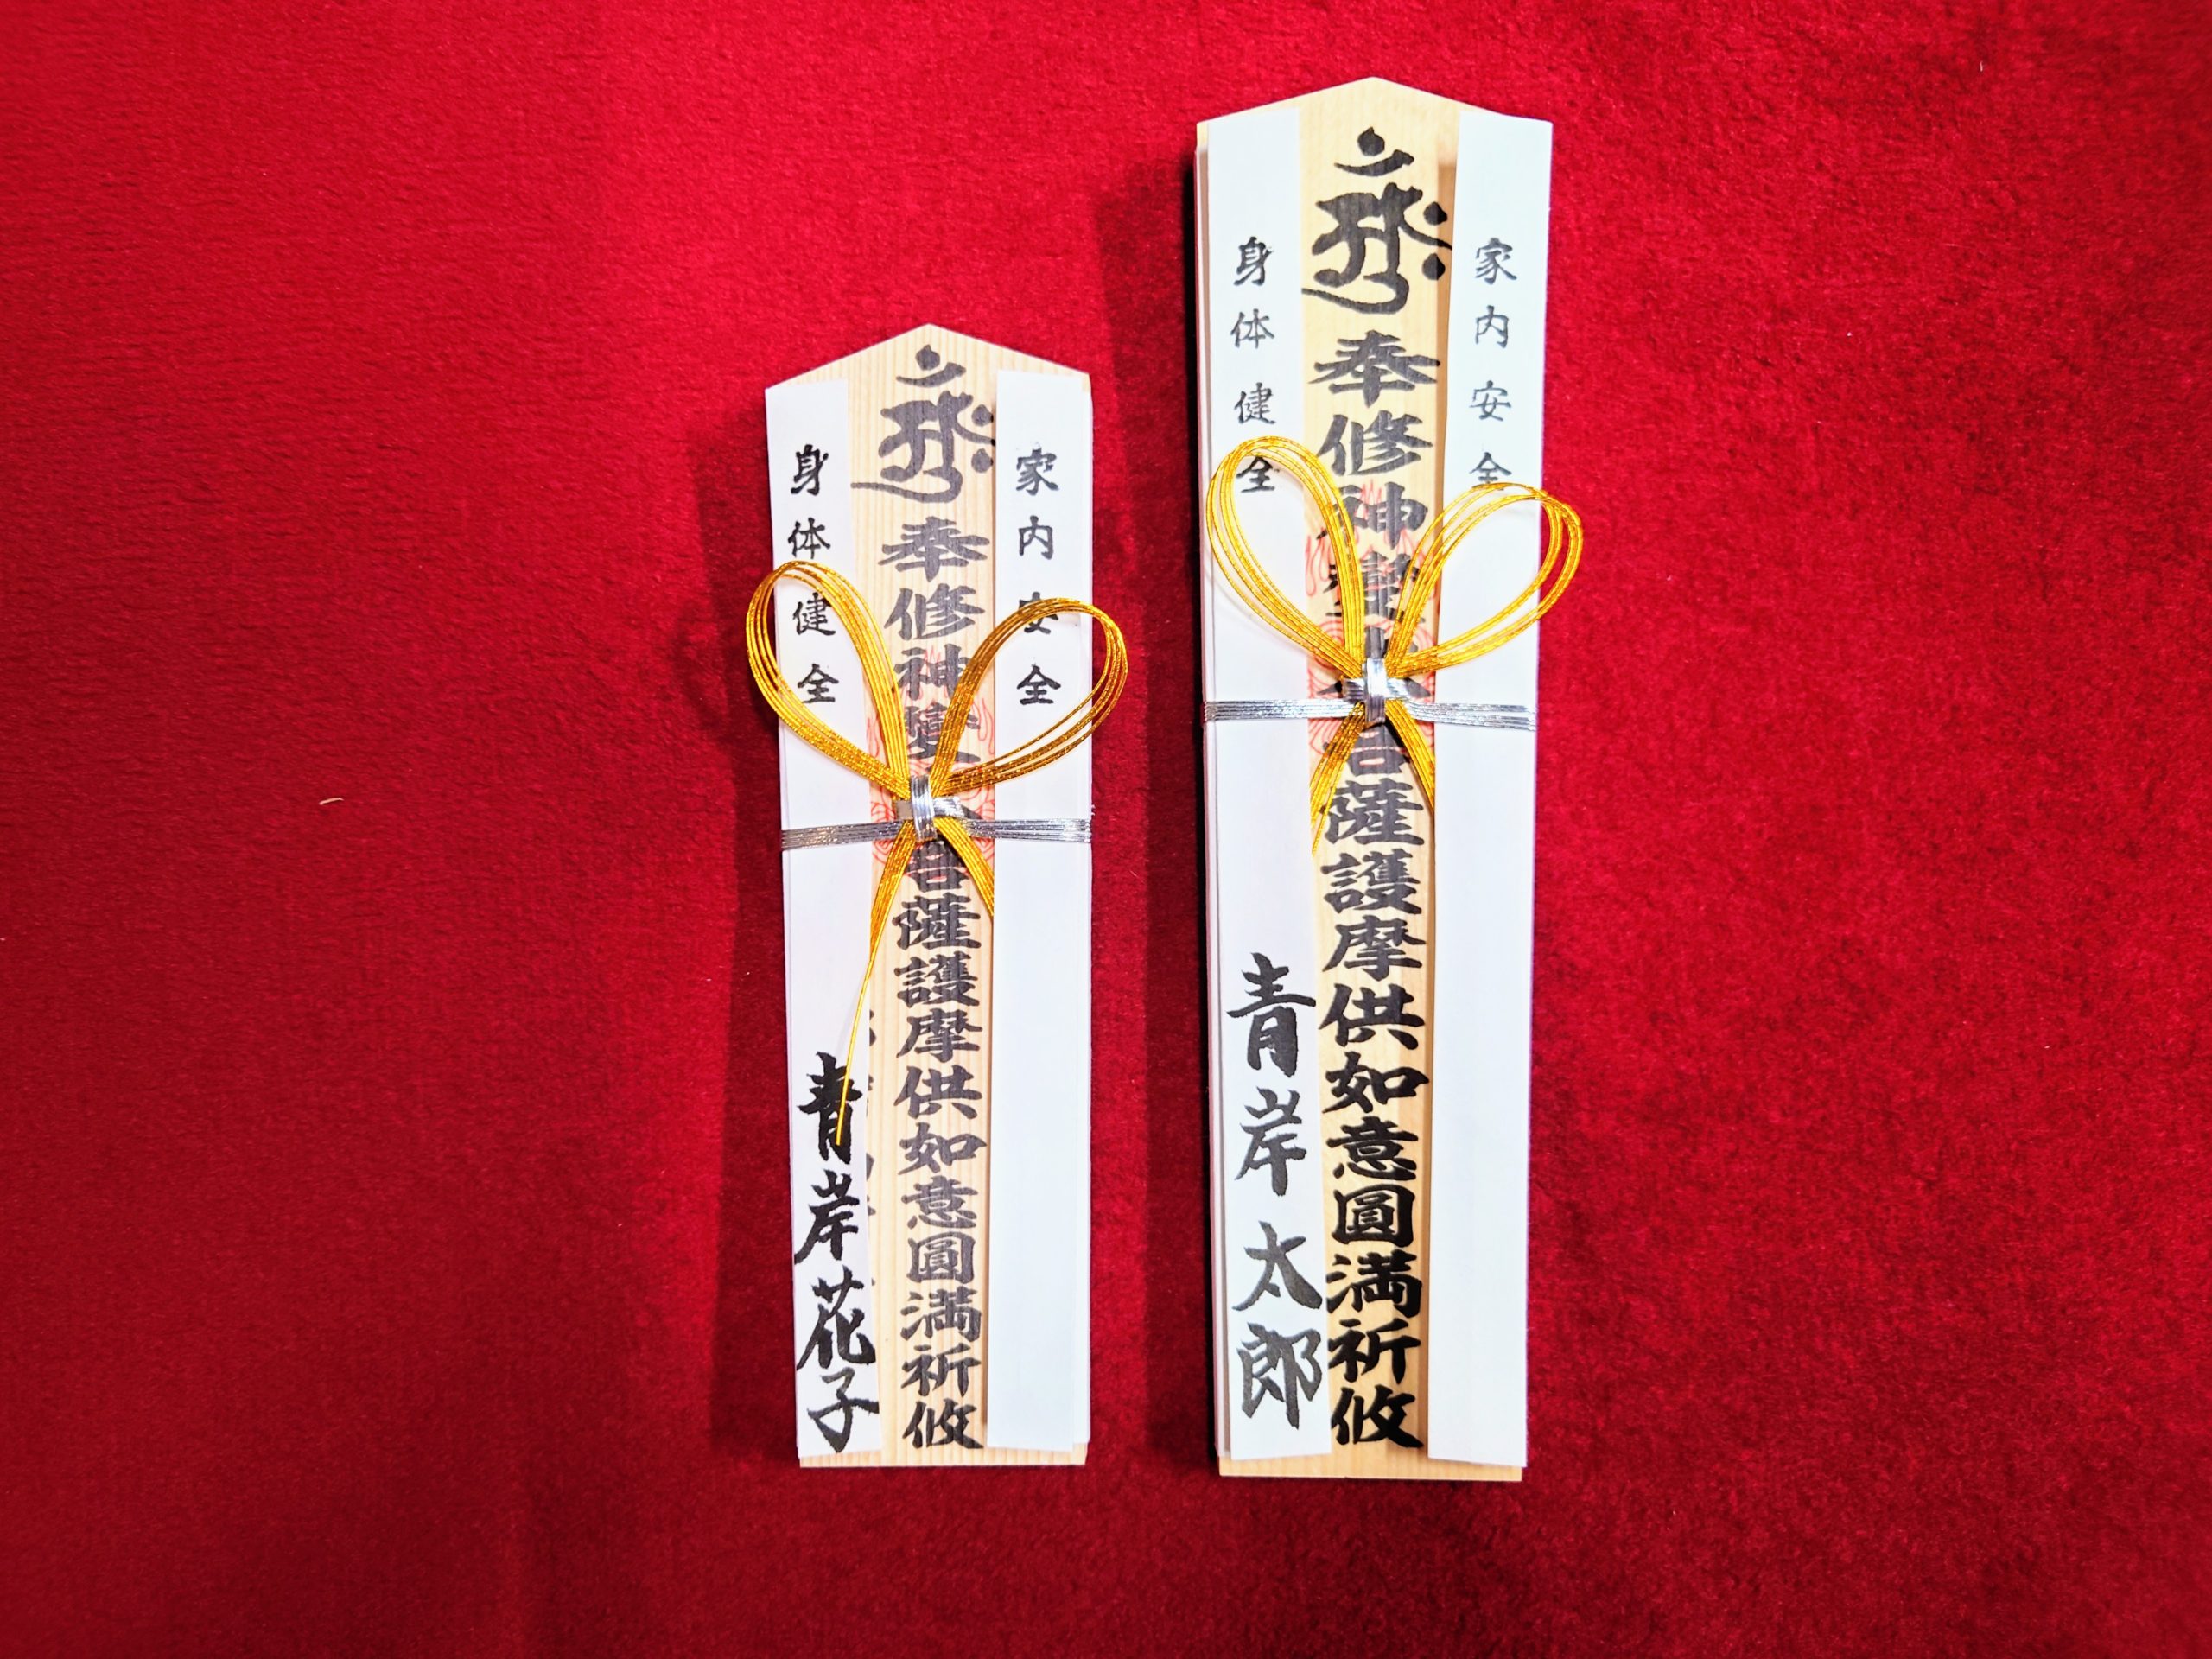 家内安全
奉修神變大菩薩護摩供如意圓満祈攸
身体健全
青岸太郎
家内安全
奉修神變大菩薩護摩供如意圓満祈攸
身体健全
青岸花子